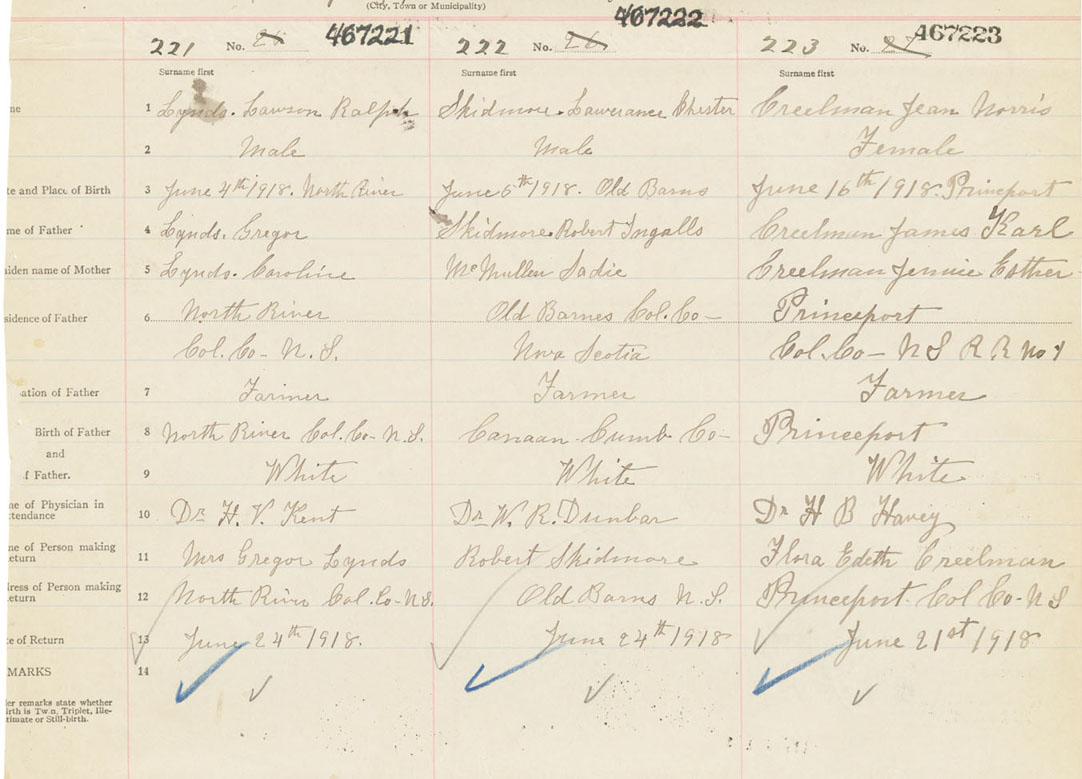 (City, Town or Municipality)
221 No. 25 467221 222 No. 26 467222 223 No. 27 467223
Surname first Surname first Surname first
me 1 Lynds. Lawson Ralph Skidmore. Lawerance Chester Creelman Jean Norris
2 Male Male Female
te and Place of Birth 3 June 4th 1918. North River June 5th 1918. Old Barns June 16th 1918. Princeport
me of Father 4 Lynds. Gregor Skidmore. Robert Ingalls Creelman James Karl
aiden name of Mother 5 Lynds. Caroline McMullen Sadie Creelman Jennie Esther
sidence of Father 6 North River Old Barnes Col. Co- Princeport
Col. Co- N.S. Nova Scotia Col. Co- N S R R No 1
ation of Father 7 Farmer Farmer Farmer
Birth of Father 8 North River Col. Co- N.S. Canaan Cumb Co- Princeport
and
f Father. 9 White White White
me of Physician in
ttendance 10 Dr. H. V. Kent Dr. W. R. Dunbar Dr H B Havey
me of Person making
eturn 11 Mrs Gregor Lynds Robert Skidmore Flora Edeth Creelman
dress of Person making
eturn 12 North River Col. Co- N.S. Old Barns N.S. Princeport Col Co- N S
te of Return 13 June 24th 1918. June 24th 1918 June 21st 1918
MARKS 14
der remarks state whether
irth is Twin, Triplet, Ille-
timate or Still-birth.